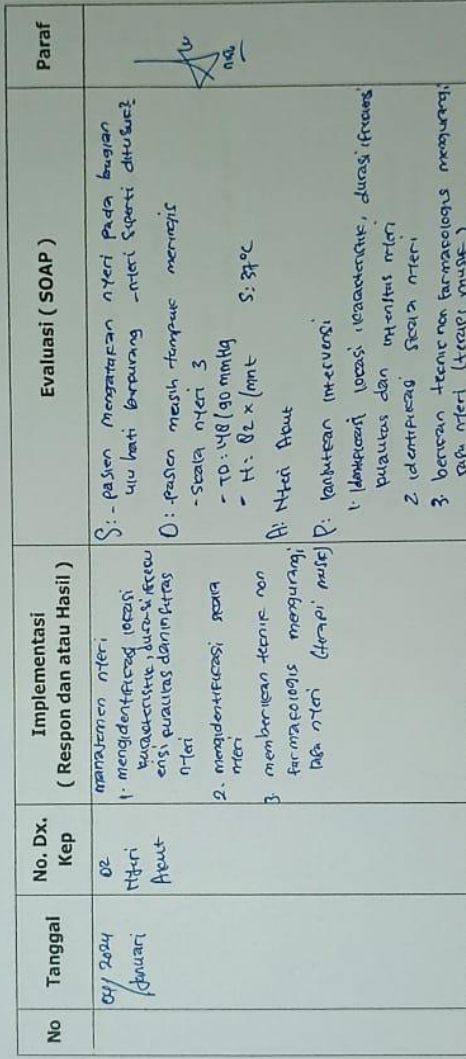 No
Tanggal
No. Dx.
Kep
Implementasi
( Respon dan atau Hasil )
Evaluasi ( SOAP )
Paraf
04/ 2024
Januari
02
Nyeri
Akut
manajemen nyeri
1. mengidentifikasi lokasi
karakteristik, durasi, frekuensi
ensi kualitas dan intensitas
nyeri
2. mengidentifikasi skala
nyeri
3. memberikan teknik non
farmakologis mengurangi
rasa nyeri (terapi musik)
S: - pasien mengatakan nyeri pada bagian
ulu hati berkurang - nyeri seperti ditusuk2
O: - pasien masih tampak meringis
- skala nyeri 3
- TD: 148/90 mmHg
- N: 82 x/mnt S: 37°C
A: Nyeri Akut
P: lanjutkan intervensi
1. Identifikasi lokasi, karakteristik, durasi, frekuensi
kualitas dan intensitas nyeri
2. identifikasi skala nyeri
3. berikan teknik non farmakologis mengurangi
rasa nyeri (terapi musik)